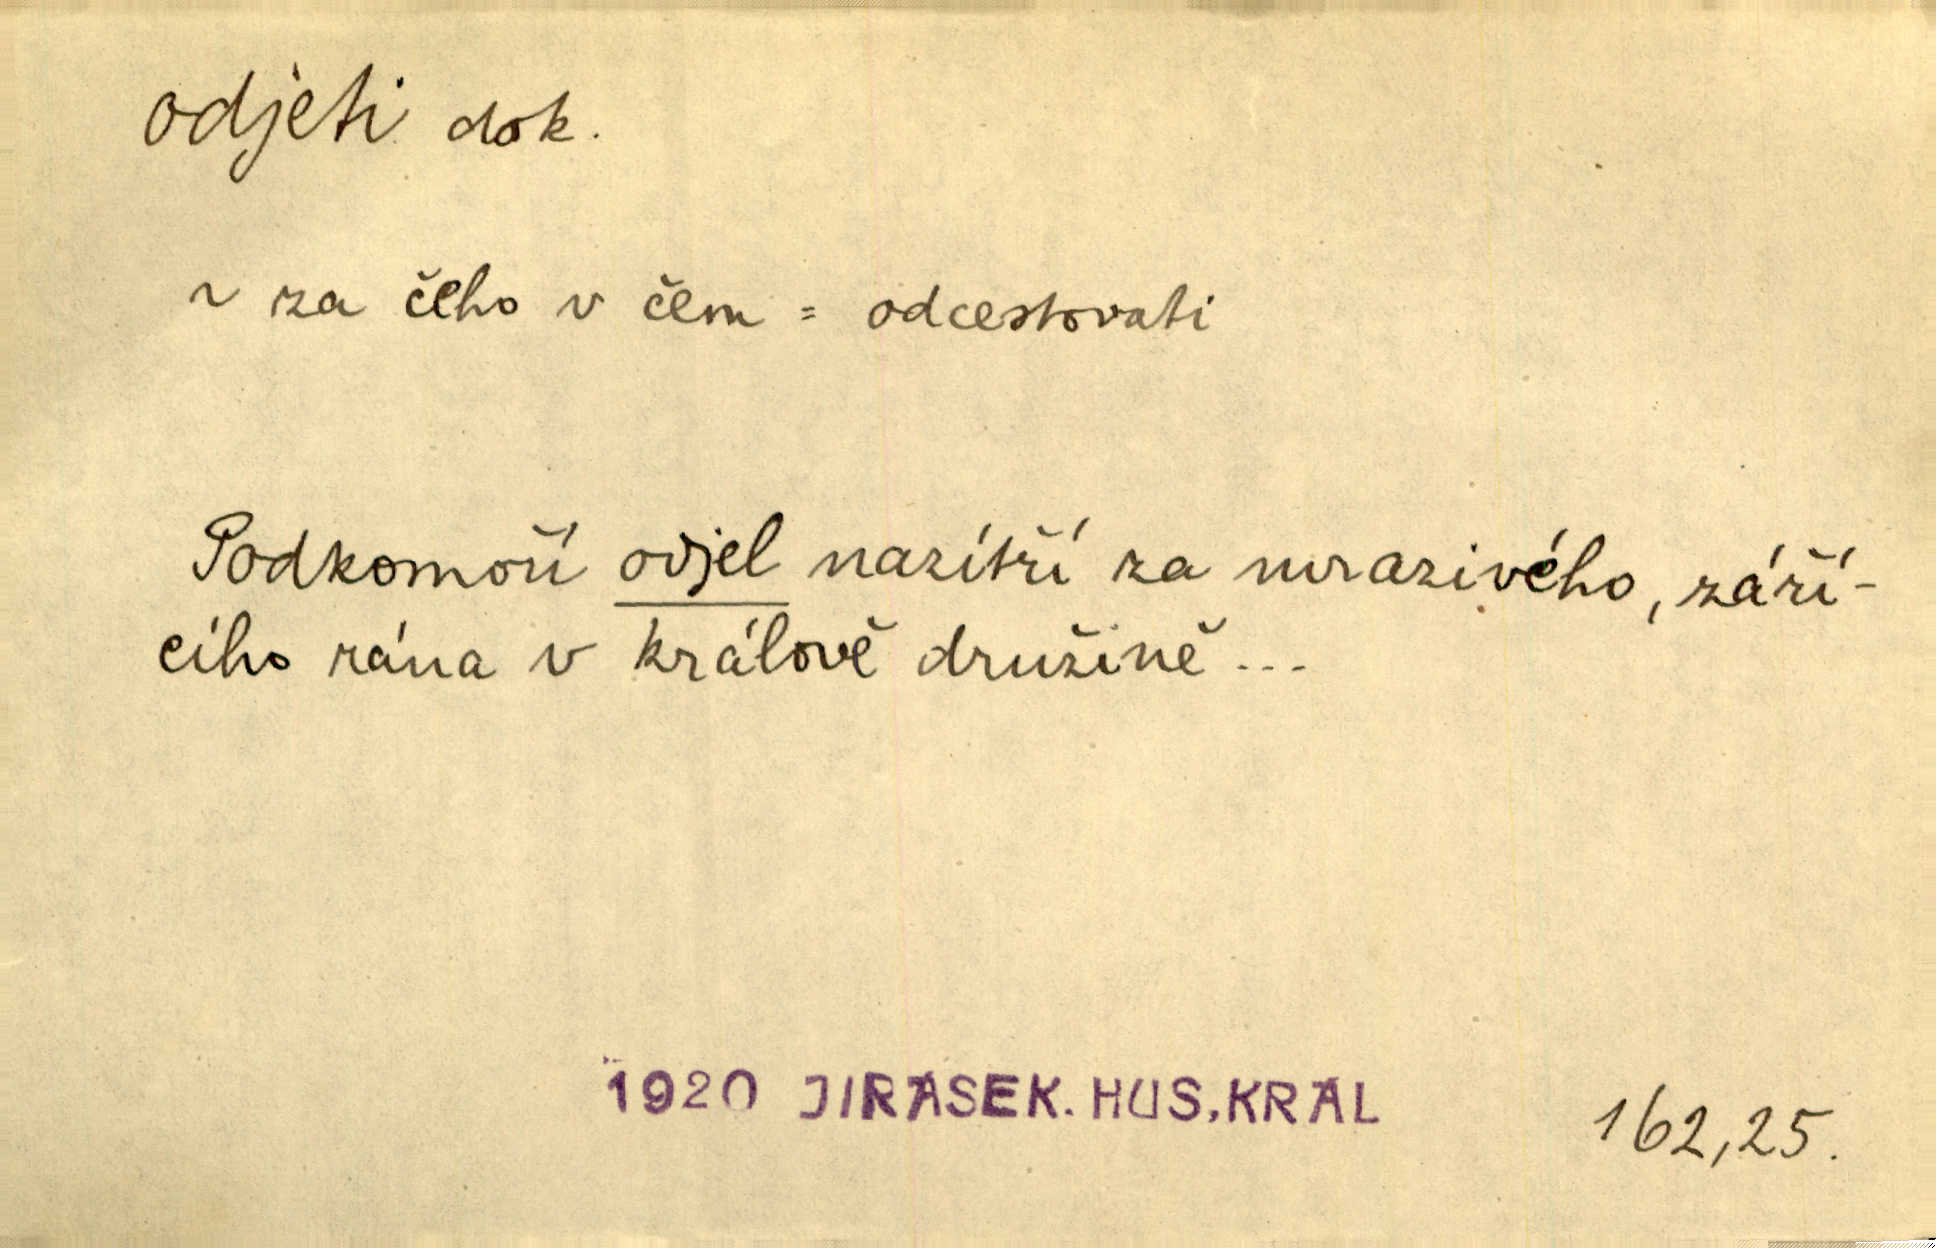 odjeti dok.
~ za čeho v čem = odcestovati
Podkomoří odjel nazítří za mrazivého, září-
cího rána v králově družině...
1920 JIRASEK. HUS. KRAL
162,25.